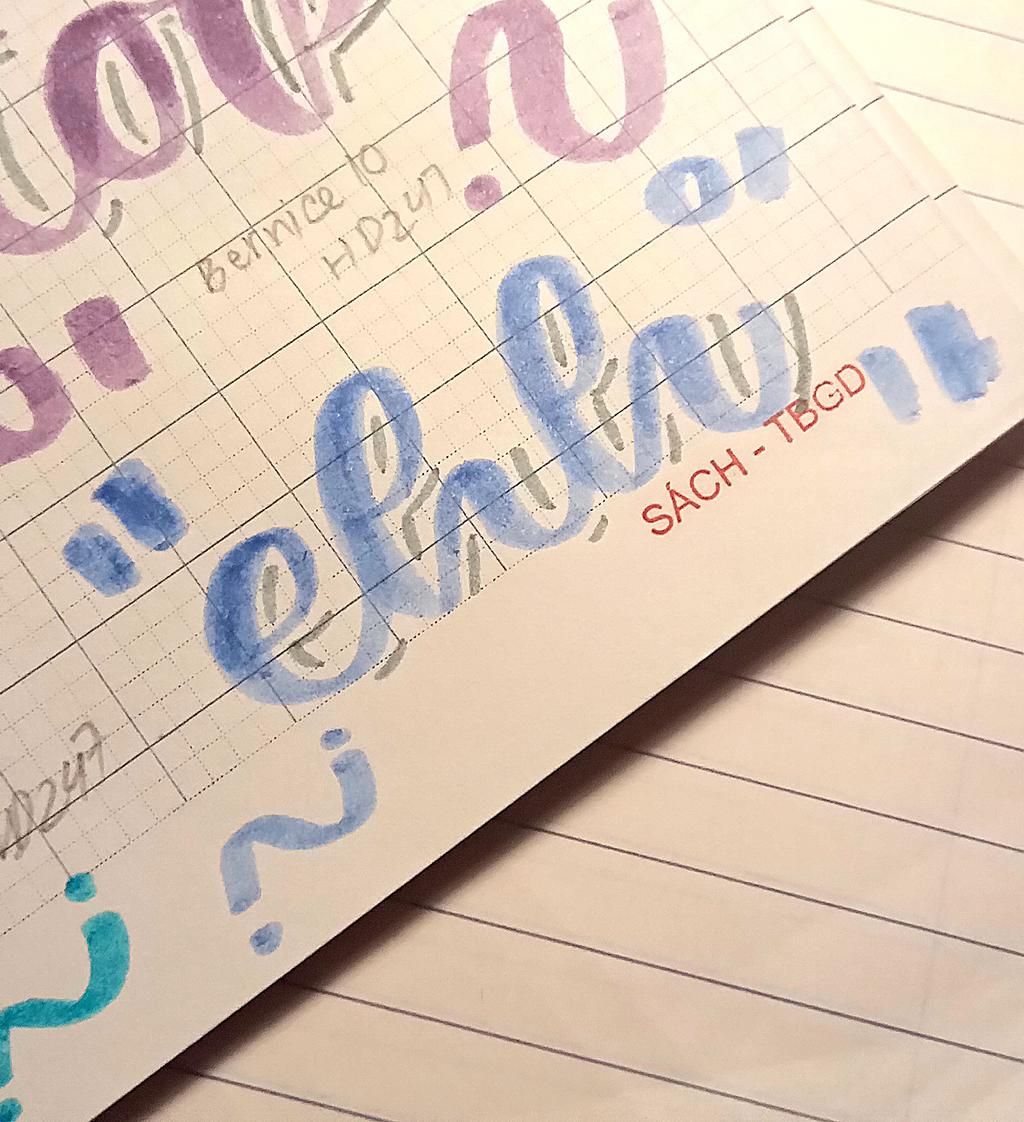 Bernice 10
HD247
"ehh"
SÁCH - TBGD
HD247